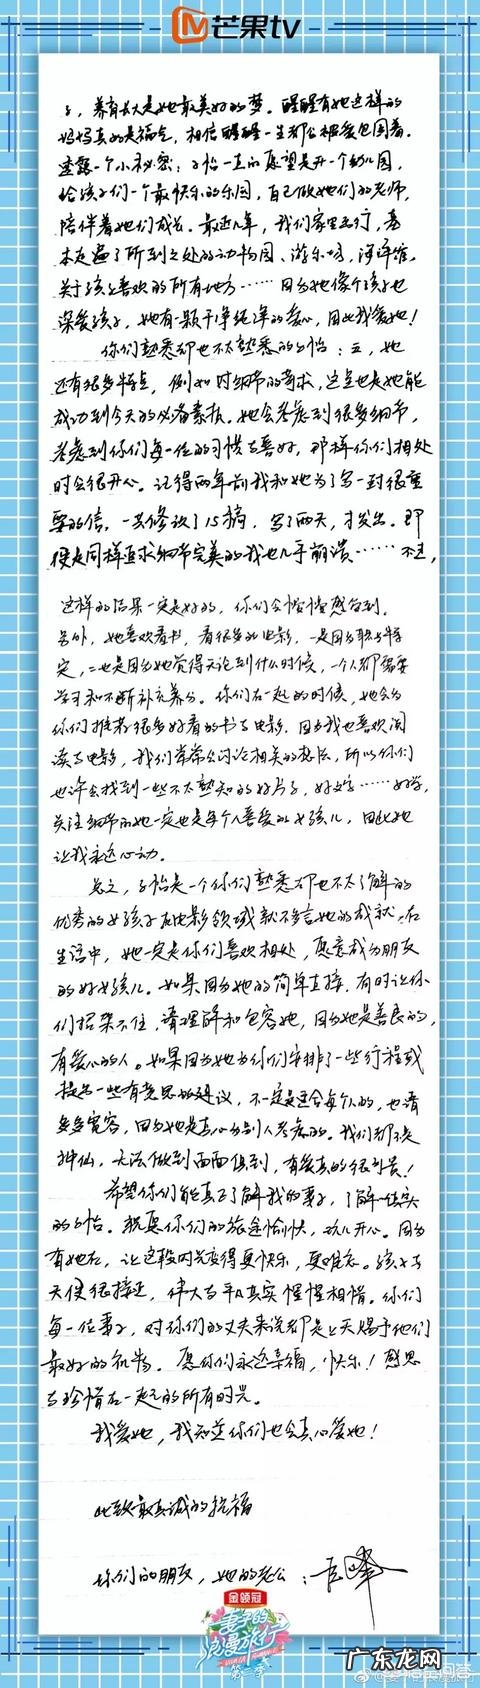 芒果tv
子，养育长大是她最美好的梦。醒醒有她这样的
妈妈真的是福气，相信醒醒一生都会被爱包围着。
透露一个小秘密：子怡一直的愿望是开一个幼儿园，
给孩子们一个最快乐的乐园，自己做她们的老师，
陪伴着她们成长。最近几年，我们家里出行，基
本走遍了所到之处的动物园、游乐场，海洋馆，
关于孩子喜欢的所有地方……因为她像个孩子也
深爱孩子，她有一颗干净纯洁的爱心，因此我爱她！
你们熟悉却也不太熟悉的子怡：五，她
还有很多特点，例如对细节的苛求，这点也是她能
成功到今天的必备素质。她会考虑到很多细节，
考虑到你们每一位的习惯与喜好，那样你们相处
时会很开心。记得两年前我和她为了写一封很重
要的信，一共修改了15稿，写了两天，才发出。即
便是同样追求细节完美的我也几乎崩溃……不过，
这样的结果一定是好的，你们会慢慢感受到。
另外，她喜欢看书，看很多的电影，一是因为职业特
定，二也是因为她觉得无论到什么时候，一个人都需要
学习和不断补充养分。你们在一起的时候，她会为
你们推荐很多好看的书与电影，因为我也喜欢阅
读与电影，我们常常会讨论相关的想法，所以你们
也许会找到一些不太熟知的好片子，好文字……好学，
关注细节的她一定也是每个人喜爱的女孩儿，因此她
让我永远心动。
总之，子怡是一个你们熟悉却也不太了解的
优秀的女孩子在电影领域就不多言她的成就，在
生活中，她一定是你们喜欢相处，愿意成为朋友
的好女孩儿。如果因为她的简单直接，有时让你
们招架不住，请理解和包容她，因为她是善良的，
有爱心的人。如果因为她为你们安排了一些行程或
提出一些有意思的建议，不一定是适合每个人的，也请
多多宽容，因为她是真心为别人考虑的。我们都不是
神仙，无法做到面面俱到，有爱真的很可贵！
希望你们能真正了解我的妻子，了解一位真实
的子怡。祝愿你们的旅途愉快，玩儿开心。因为
有她在，让这段时光变得更快乐，更难忘。孩子与
天使很接近，伟大与平凡真实惺惺相惜。你们
每一位妻子，对你们的丈夫来说都是上天赐予他们
最好的礼物。愿你们永远幸福，快乐！感恩
与珍惜在一起的所有时光。
我爱她，我知道你们也会真心爱她！
此致最真诚的祝福
你们的朋友，她的老公：
金领冠
妻子的
浪漫旅行
第二季
广东龙网